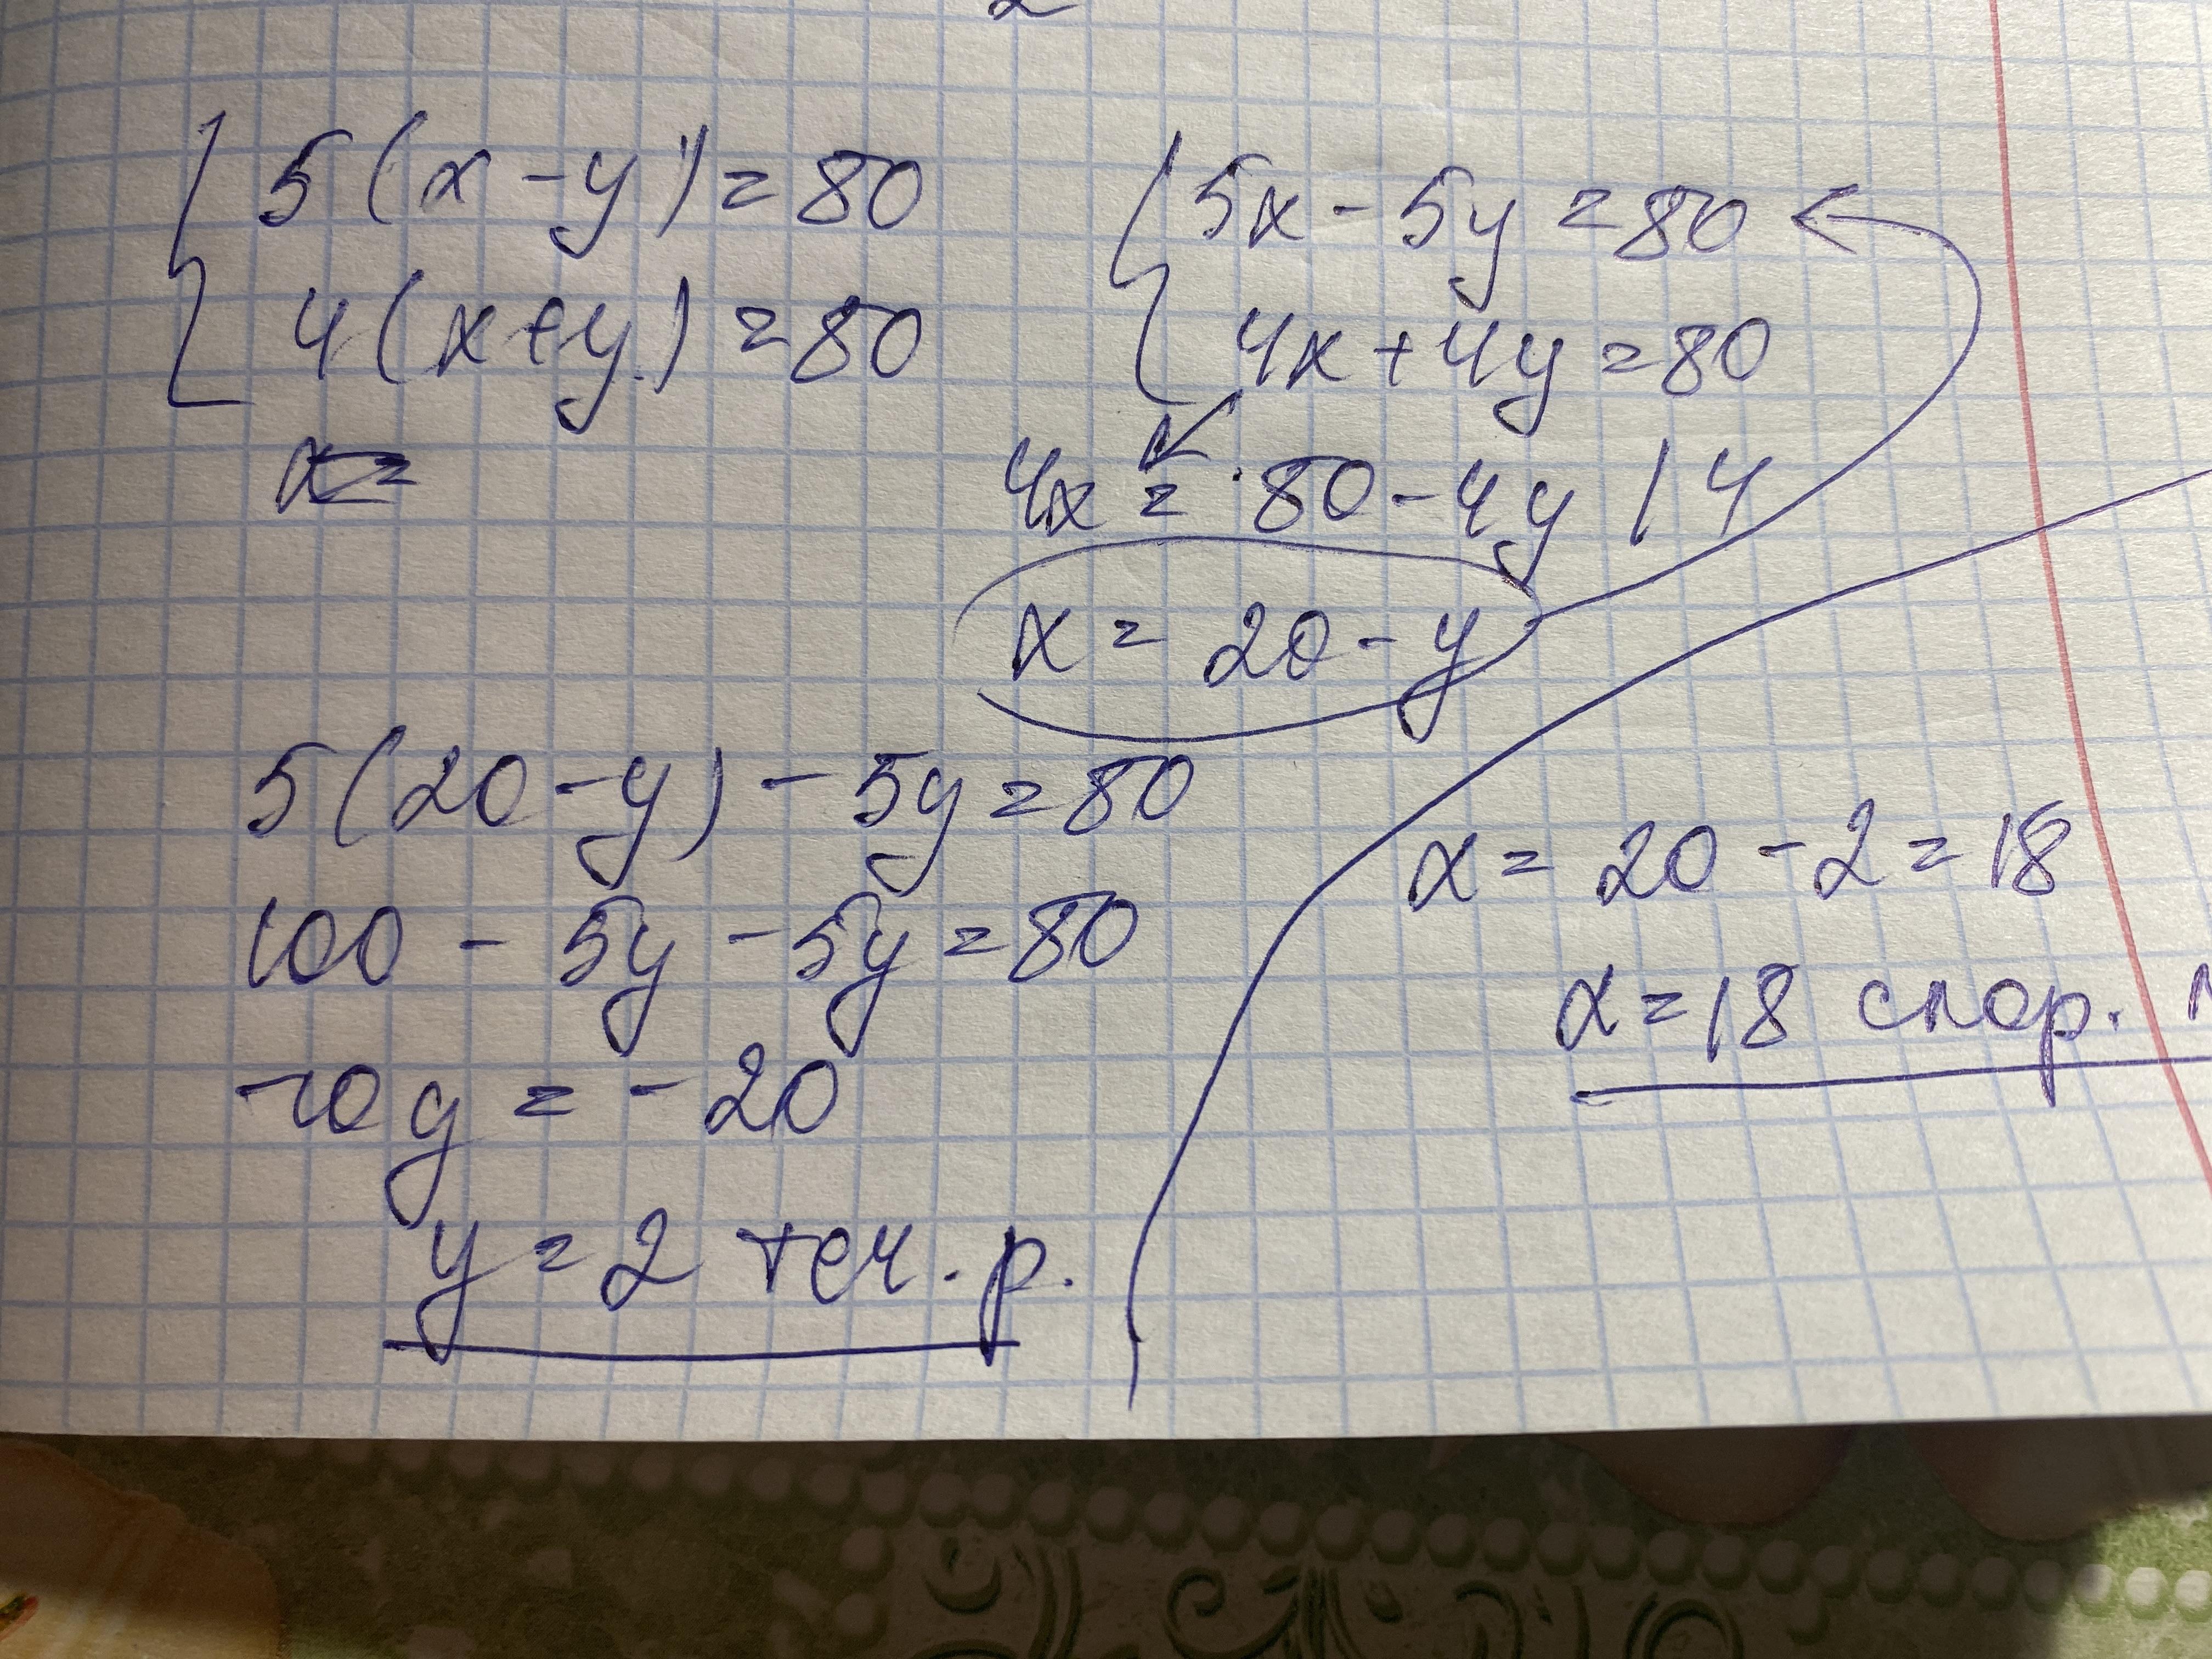 5(x-y)=80
4(x+y)=80
5x-5y=80
4x+4y=80
4x=80-4y |4
x=20-y
5(20-y)-5y=80
100-5y-5y=80
-10y=-20
y=2 теч. р.
x=20-2=18
x=18 скор.